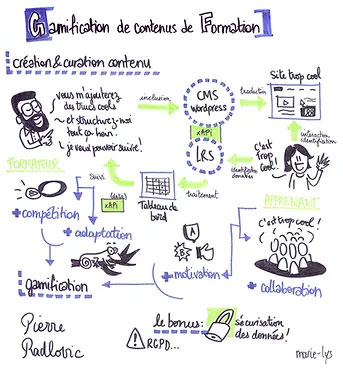 Gamification de contenus de Formation
création & curation contenu
vous m'ajouterez
des trucs cools
et structurez-moi
tout ça hein!
je veux pouvoir suivre!
inclusion
CMS
wordpress
xAPI
LRS
traduction
Site trop cool
interaction
identification
C'est
Trop
Cool
identité
données
FORMATEUR
suivi
(data)
xAPI
Tableau de
bord
traitement
APPRENANT
+ compétition
+ adaptation
gamification
A
B
+ motivation
c'est trop cool!
+ collaboration
Pierre
Radlovic
le bonus:
sécurisation
des données!
RGPD...
marie-lys